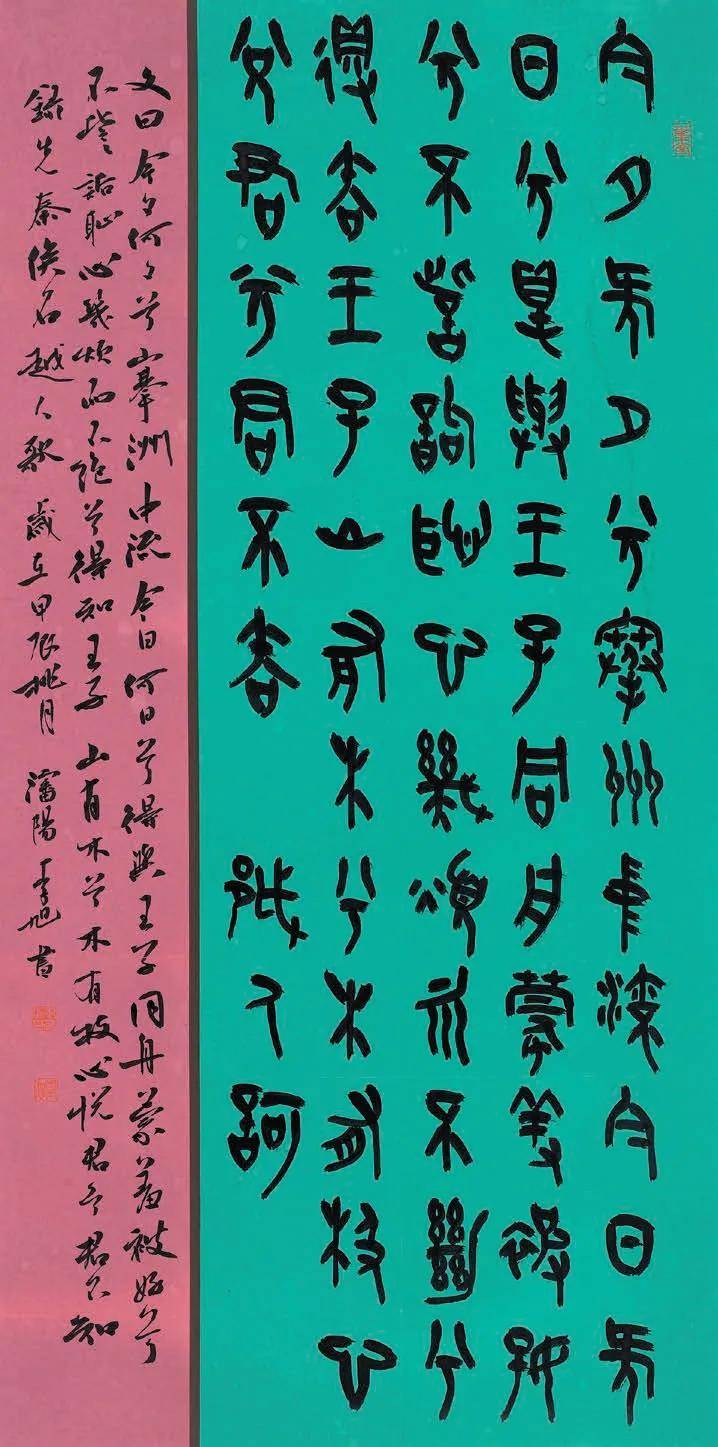 今夕何夕兮搴州中流今日何
日兮得與王子同舟蒙羞被好
兮不訾詬恥心幾煩而不絕兮
得知王子山有木兮木有枝心
兌君兮君不知 越人歌
文曰今夕何夕兮搴洲中流今日何日兮得與王子同舟蒙羞被好兮
不訾詬恥心幾煩而不絕兮得知王子山有木兮木有枝心悅君兮君不知
錄先秦佚名越人歌 歲在甲辰桃月 瀋陽李旭書